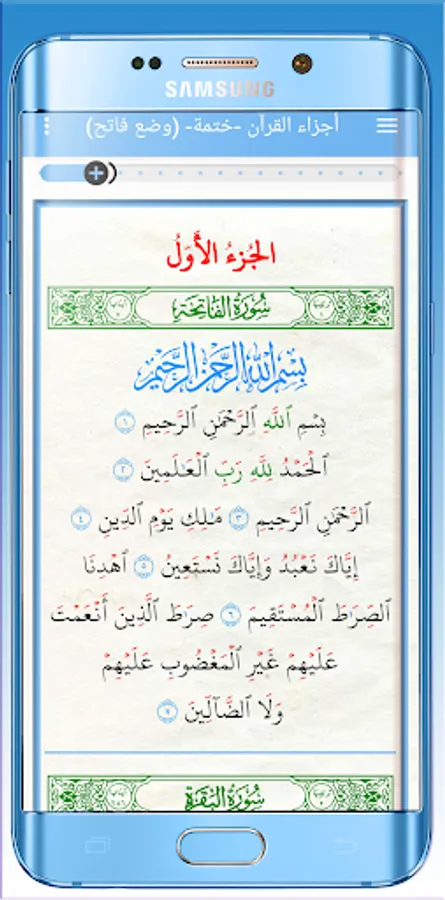 SAMSUNG
أجزاء القرآن -ختمة- (وضع فاتح)
الجُزءُ الأَوّلُ
سُورَةُ الفَاتِحَةِ
بِسْمِ اللَّهِ الرَّحْمَٰنِ الرَّحِيمِ
بِسْمِ ٱللَّهِ ٱلرَّحْمَٰنِ ٱلرَّحِيمِ ١
ٱلْحَمْدُ لِلَّهِ رَبِّ ٱلْعَٰلَمِينَ ٢
ٱلرَّحْمَٰنِ ٱلرَّحِيمِ ٣ مَٰلِكِ يَوْمِ ٱلدِّينِ ٤
إِيَّاكَ نَعْبُدُ وَإِيَّاكَ نَسْتَعِينُ ٥ ٱهْدِنَا
ٱلصِّرَٰطَ ٱلْمُسْتَقِيمَ ٦ صِرَٰطَ ٱلَّذِينَ أَنْعَمْتَ
عَلَيْهِمْ غَيْرِ ٱلْمَغْضُوبِ عَلَيْهِمْ
وَلَا ٱلضَّآلِّينَ ٧
سُورَةُ البَقَرَةِ